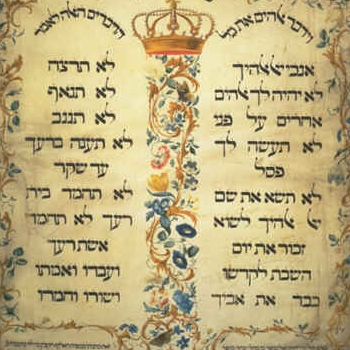 וידבר אלהים את כל
הדברים האלה לאמר
אנכי יי אלהיך
לא יהיה לך אלהים
אחרים על פני
לא תעשה לך
פסל
לא תשא את שם
יי אלהיך לשוא
זכור את יום
השבת לקדשו
כבד את אביך
לא תרצח
לא תנאף
לא תגנב
לא תענה ברעך
עד שקר
לא תחמד בית
רעך לא תחמד
אשת רעך
ועבדו ואמתו
ושורו וחמרו